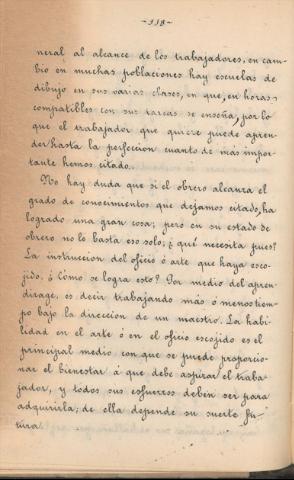 -118-
neral al alcance de los trabajadores, en cam-
bio en muchas poblaciones hay escuelas de
dibujo en sus varias clases, en que, en horas
compatibles con sus tareas se enseña, por lo
que el trabajador que quiere puede apren-
der hasta la perfeccion cuanto de más impor-
tante hemos citado.
No hay duda que si el obrero alcanza el
grado de conocimientos que dejamos citado, ha
logrado una gran cosa; pero en su estado de
obrero no le basta eso solo; ¿qué necesita pues?
La instruccion del oficio ó arte que haya esco-
jido. ¿Cómo se logra esto? Por medio del apren-
dizage, es decir trabajando más ó menos tiem-
po bajo la direccion de un maestro. La habi-
lidad en el arte ó en el oficio escojido es el
principal medio con que se puede proporcio-
nar el bienestar á que debe aspirar el traba-
jador, y todos sus esfuerzos deben ser para
adquirirla; de ella depende su suerte fu-
tura.